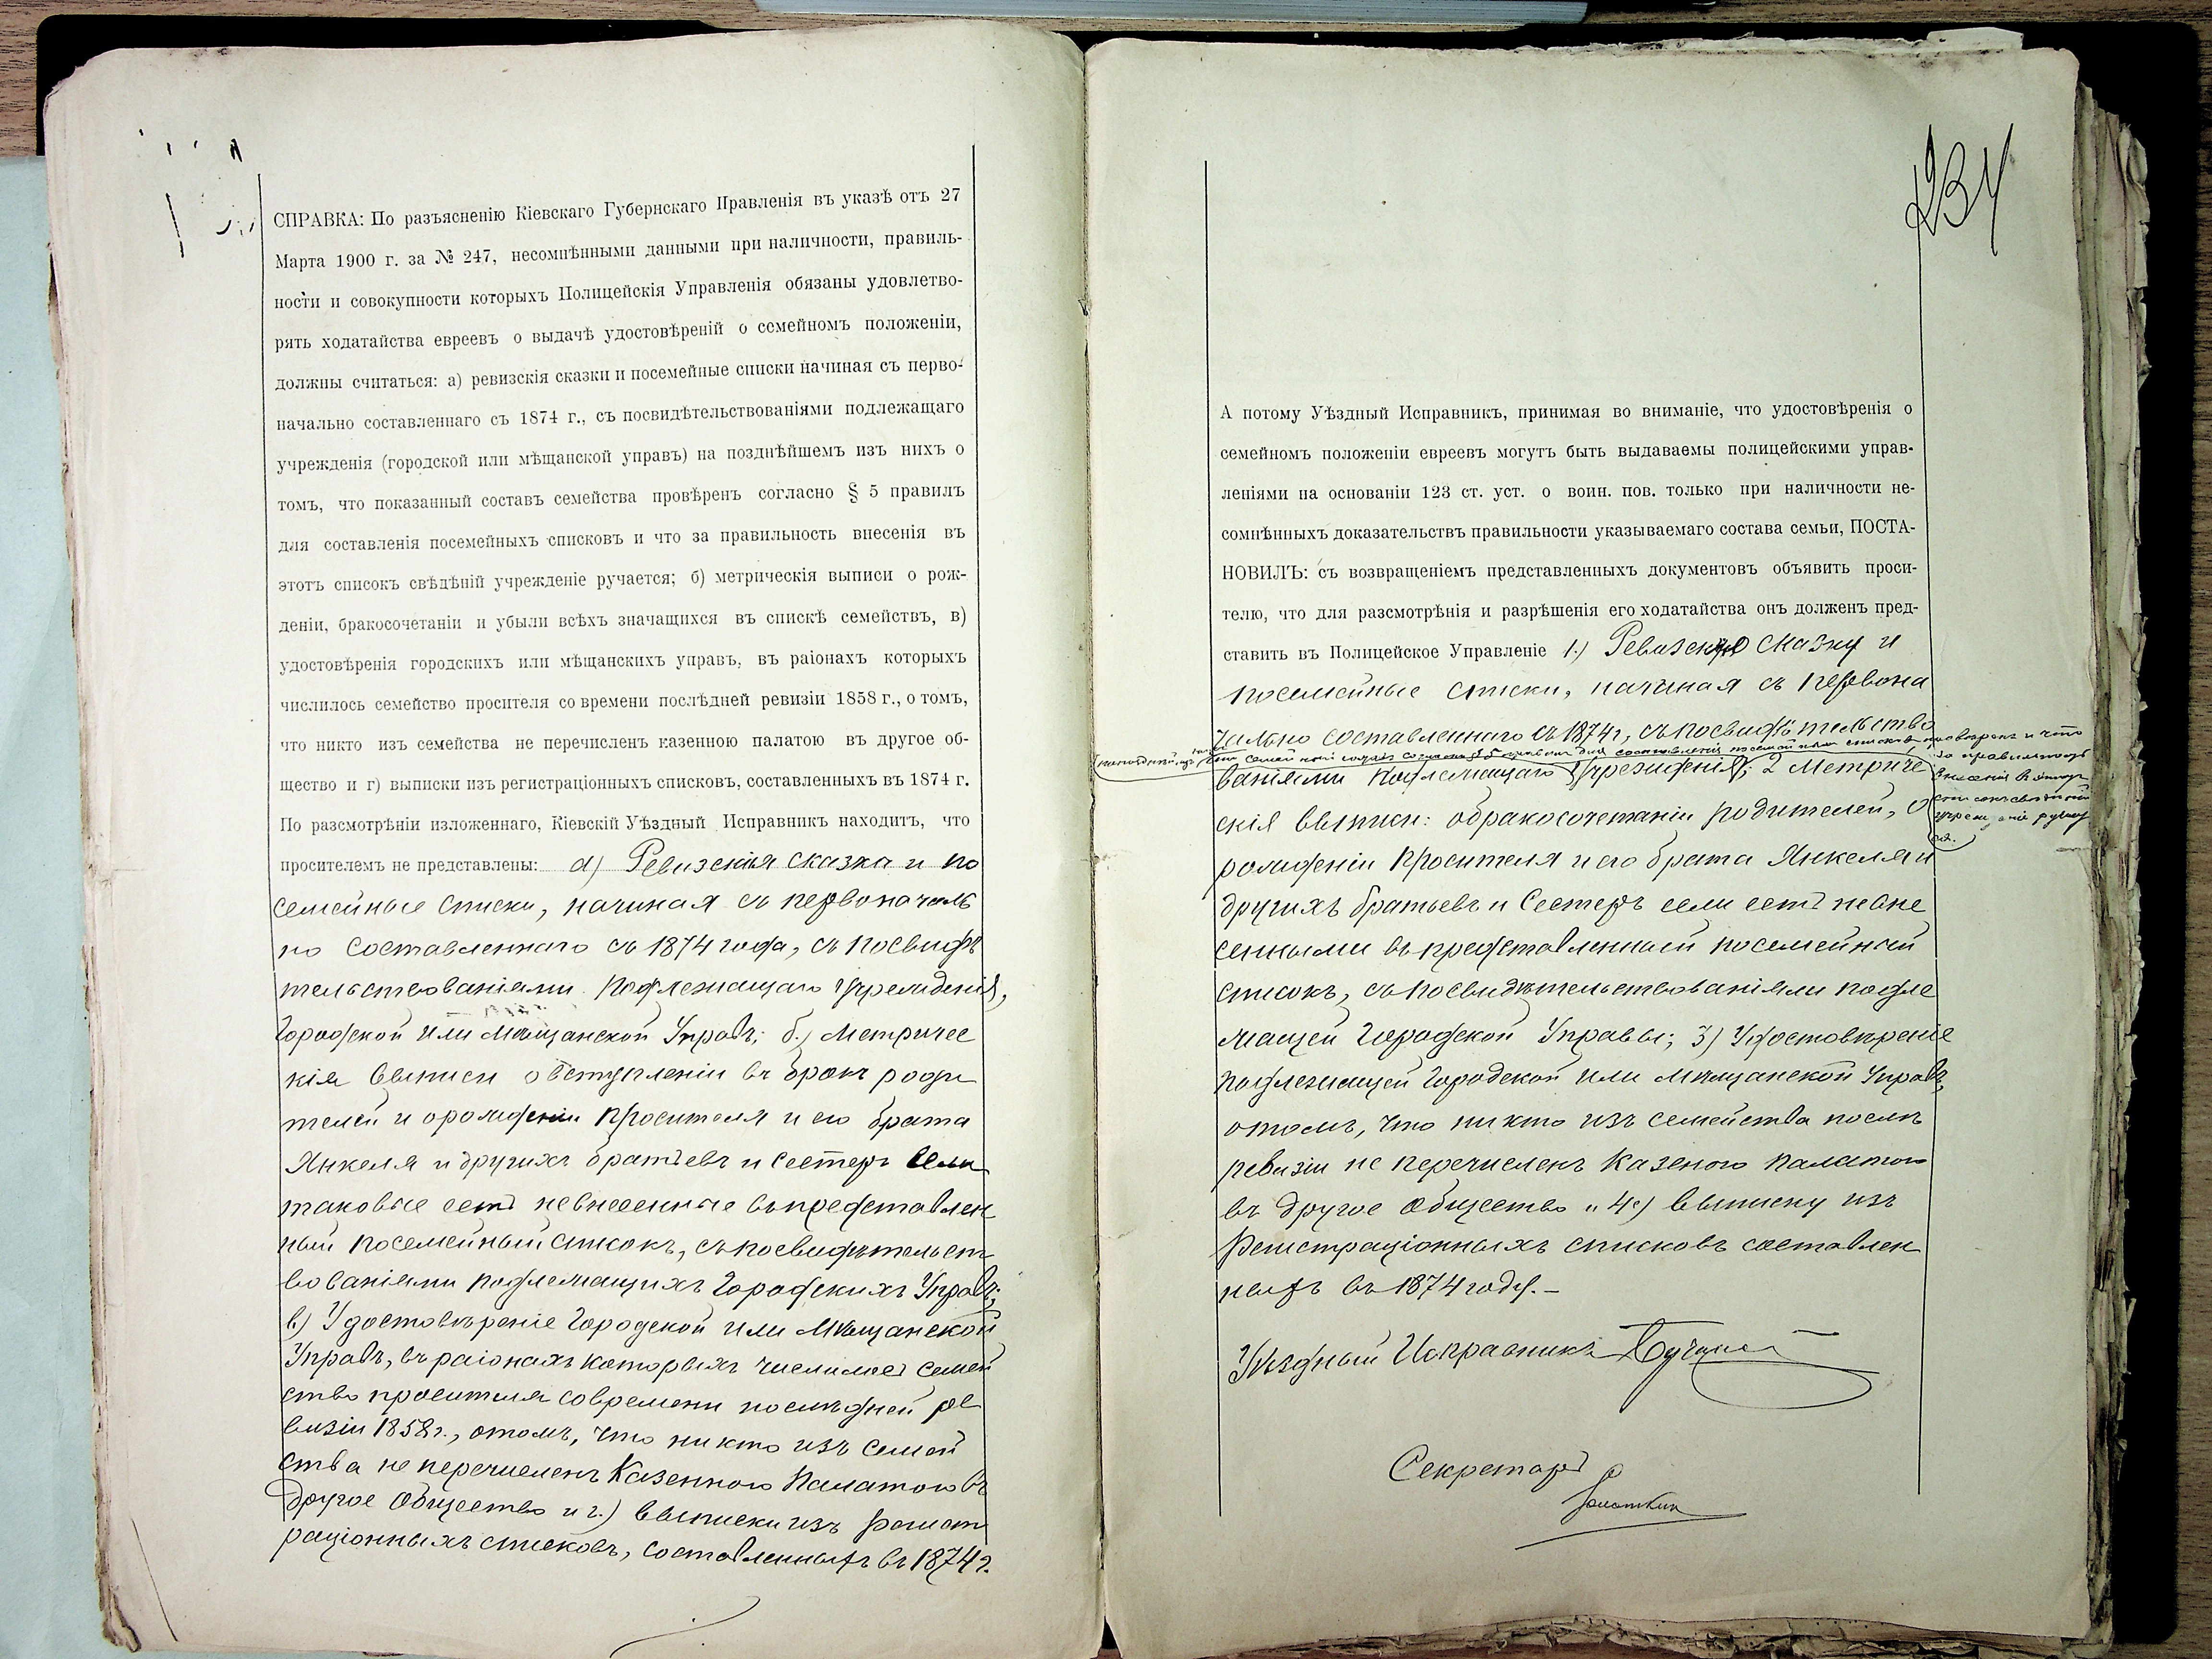 СПРАВКА: По разъясненію Кіевскаго Губернскаго Правленія въ указѣ отъ 27
Марта 1900 г. за № 247, несомнѣнными данными при наличности, правиль-
ности и совокупности которыхъ Полицейскія Управленія обязаны удовлетво-
рять ходатайства евреевъ о выдачѣ удостовѣреній о семейномъ положеніи,
должны считаться: а) ревизскія сказки и посемейные списки начиная съ перво-
начально составленнаго съ 1874 г., съ посвидѣтельствованіями подлежащаго
учрежденія (городской или мѣщанской управъ) на позднѣйшемъ изъ нихъ о
томъ, что показанный составъ семейства провѣренъ согласно § 5 правилъ
для составленія посемейныхъ списковъ и что за правильность внесенія въ
этотъ списокъ свѣдѣній учрежденіе ручается; б) метрическія выписи о рож-
деніи, бракосочетаніи и убыли всѣхъ значащихся въ спискѣ семействъ, в)
удостовѣренія городскихъ или мѣщанскихъ управъ, въ раіонахъ которыхъ
числилось семейство просителя со времени послѣдней ревизіи 1858 г., о томъ,
что никто изъ семейства не перечисленъ казенною палатою въ другое об-
щество и г) выписки изъ регистраціонныхъ списковъ, составленныхъ въ 1874 г.
По разсмотрѣніи изложеннаго, Кіевскій Уѣздный Исправникъ находитъ, что
просителемъ не представлены: а) Ревизскія сказка и по
семейные списки, начиная съ первоначаль
но составленнаго съ 1874 года, съ посвидѣ
тельствованіями подлежащаго Учрежденія,
Городской или Мѣщанской Управъ; б.) Метричес
кія выписи о вступленіи въ бракъ роди
телей и о рожденіи просителя и его брата
Янкеля и другихъ братьевъ и сестеръ если
таковые есть невнесенные въ представлен
ный посемейный списокъ, съ посвидѣтельст
вованіями подлежащихъ Городскихъ Управъ;
в) Удостовѣреніе Городской или Мѣщанской
Управъ, въ раіонахъ которыхъ числилось семей
ство просителя со времени послѣдней ре
визіи 1858 г., о томъ, что никто изъ семей
ства не перечисленъ Казенною Палатою въ
другое Общество и г.) выписки изъ регист
раціонныхъ списковъ, составленныхъ въ 1874 г.
234
А потому Уѣздный Исправникъ, принимая во вниманіе, что удостовѣренія о
семейномъ положеніи евреевъ могутъ быть выдаваемы полицейскими управ-
леніями на основаніи 123 ст. уст. о воин. пов. только при наличности не-
сомнѣнныхъ доказательствъ правильности указываемаго состава семьи, ПОСТА-
НОВИЛЪ: съ возвращеніемъ представленныхъ документовъ объявить проси-
телю, что для разсмотрѣнія и разрѣшенія его ходатайства онъ долженъ пред-
ставить въ Полицейское Управленіе 1.) Ревизскую сказку и
посемейные списки, начиная съ первона
чально составленнаго съ 1874 г, съ посвидѣтельство
семейный составъ согласно § 5 правилъ для составленія посемейныхъ списковъ провѣренъ и что
за правильность
внесенія въ этотъ
списокъ свѣдѣній
учрежденіе ручает
ся.
ваніями подлежащаго Учрежденія; 2 Метриче
скія выписи: о бракосочетаніи родителей, о
рожденіи просителя и его брата Янкеля и
другихъ братьевъ и сестеръ если есть невне
сенными въ представленный посемейный
списокъ, съ посвидѣтельствованіями подле
жащей Городской Управы; 3) Удостовѣреніе
подлежащей Городской или Мѣщанской Управъ,
о томъ, что никто изъ семейства послѣ
ревизіи не перечисленъ Казеною палатою
въ другое Общество и 4) выписку изъ
Регистраціонныхъ списковъ составлен
ныхъ въ 1874 году. –
Уѣздный Исправникъ
Секретарь